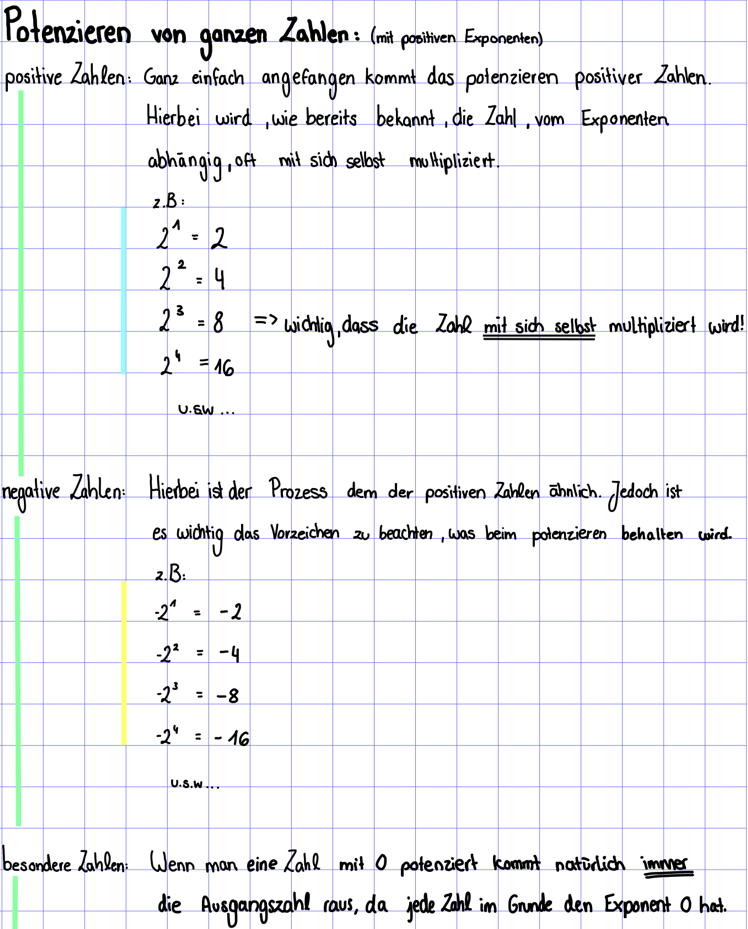 Potenzieren von ganzen Zahlen: (mit positiven Exponenten)
positive Zahlen: Ganz einfach angefangen kommt das potenzieren positiver Zahlen.
Hierbei wird, wie bereits bekannt, die Zahl, vom Exponenten
abhängig, oft mit sich selbst multipliziert.
z.B:
2¹ = 2
2² = 4
2³ = 8 => wichtig, dass die Zahl mit sich selbst multipliziert wird!
2⁴ = 16
u.s.w ...
negative Zahlen: Hierbei ist der Prozess dem der positiven Zahlen ähnlich. Jedoch ist
es wichtig das Vorzeichen zu beachten, was beim potenzieren behalten wird.
z.B:
-2¹ = -2
-2² = -4
-2³ = -8
-2⁴ = -16
u.s.w ...
besondere Zahlen: Wenn man eine Zahl mit 0 potenziert kommt natürlich immer
die Ausgangszahl raus, da jede Zahl im Grunde den Exponent 0 hat.